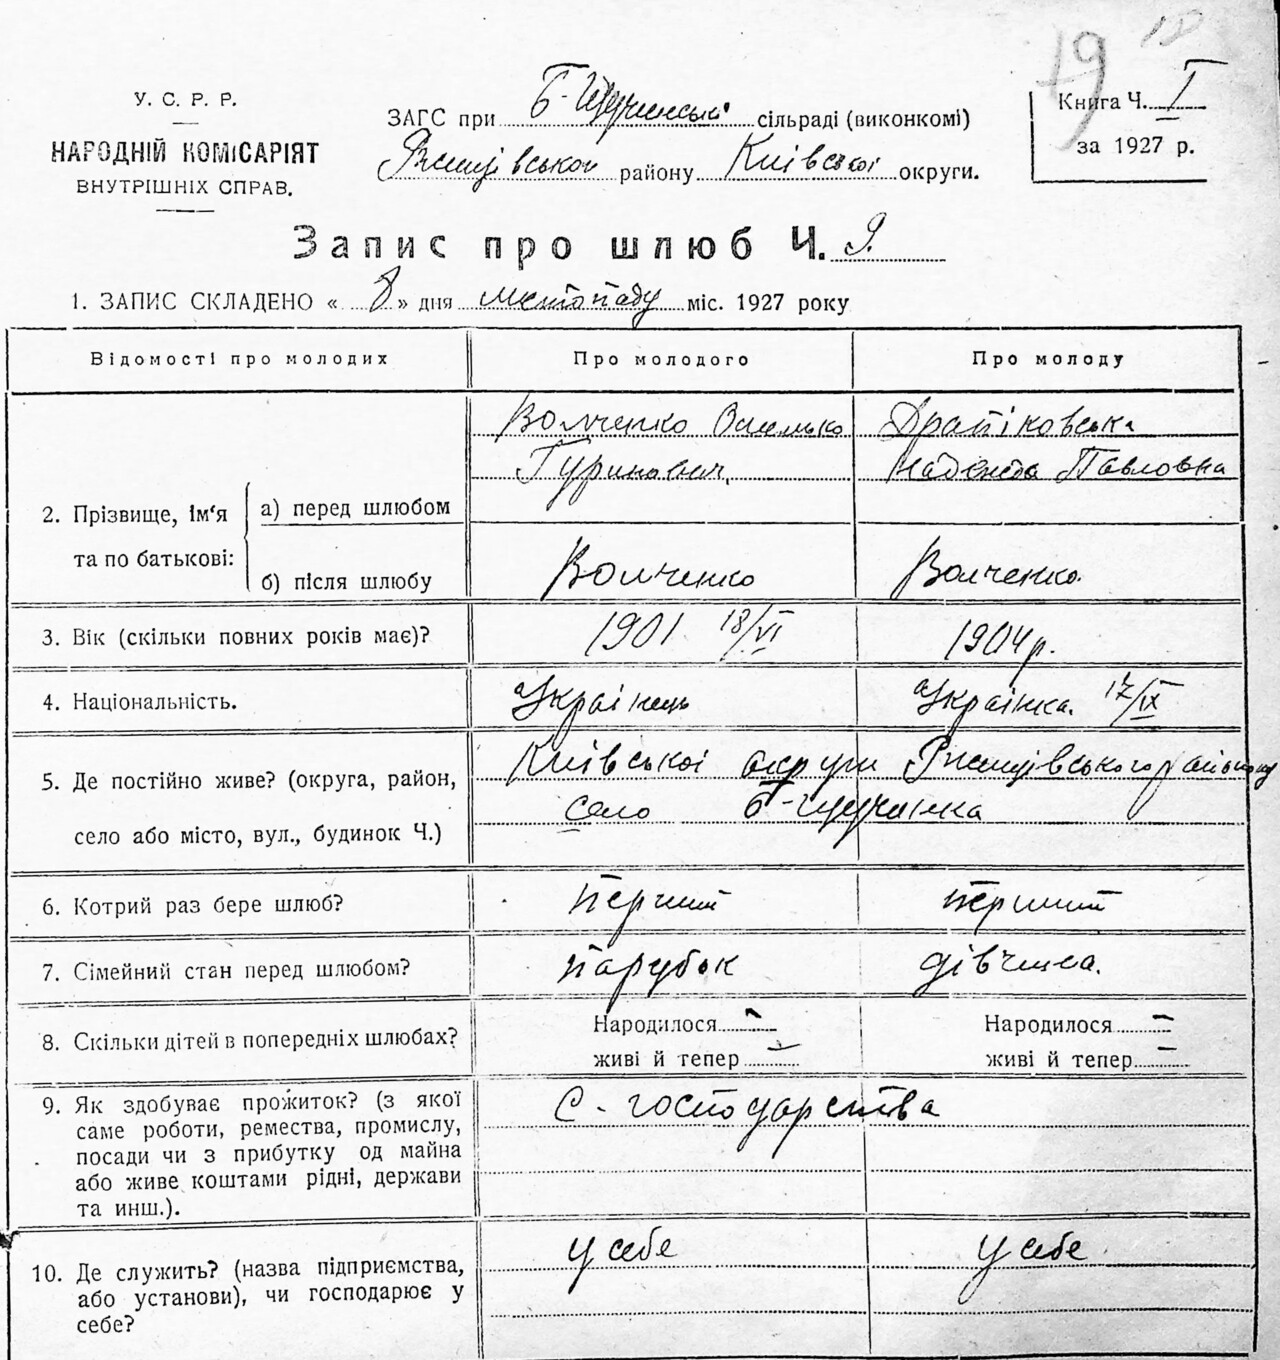 19
У. С. Р. Р.
НАРОДНІЙ КОМІСАРІЯТ
ВНУТРІШНІХ СПРАВ.
ЗАГС при Б-Щучинській сільраді (виконкомі)
Ржищівського району Київської округи.
Книга Ч. I
за 1927 р.
Запис про шлюб Ч. 9.
1. ЗАПИС СКЛАДЕНО « 8 » дня листопаду міс. 1927 року
Відомості про молодих
Про молодого
Про молоду
2. Прізвище, ім'я та по батькові:
а) перед шлюбом
Волченко
Гуринович,
Драпіковська
Надежда Павловна
б) після шлюбу
Волченко
Волченко.
3. Вік (скільки повних років має)?
1901 18/VI
1904 р.
4. Національність.
Українець
Українка. 17/IX
5. Де постійно живе? (округа, район,
село або місто, вул., будинок Ч.)
Київської округи Ржищівського району
село Б-Щучинка
6. Котрий раз бере шлюб?
перший
перший
7. Сімейний стан перед шлюбом?
парубок
дівчина.
8. Скільки дітей в попередніх шлюбах?
Народилося –
живі й тепер –
Народилося –
живі й тепер –
9. Як здобуває прожиток? (з якої
саме роботи, ремества, промислу,
посади чи з прибутку од майна
або живе коштами рідні, держави
та инш.).
С.-господарства
10. Де служить? (назва підприємства,
або установи), чи господарює у
себе?
у себе
у себе